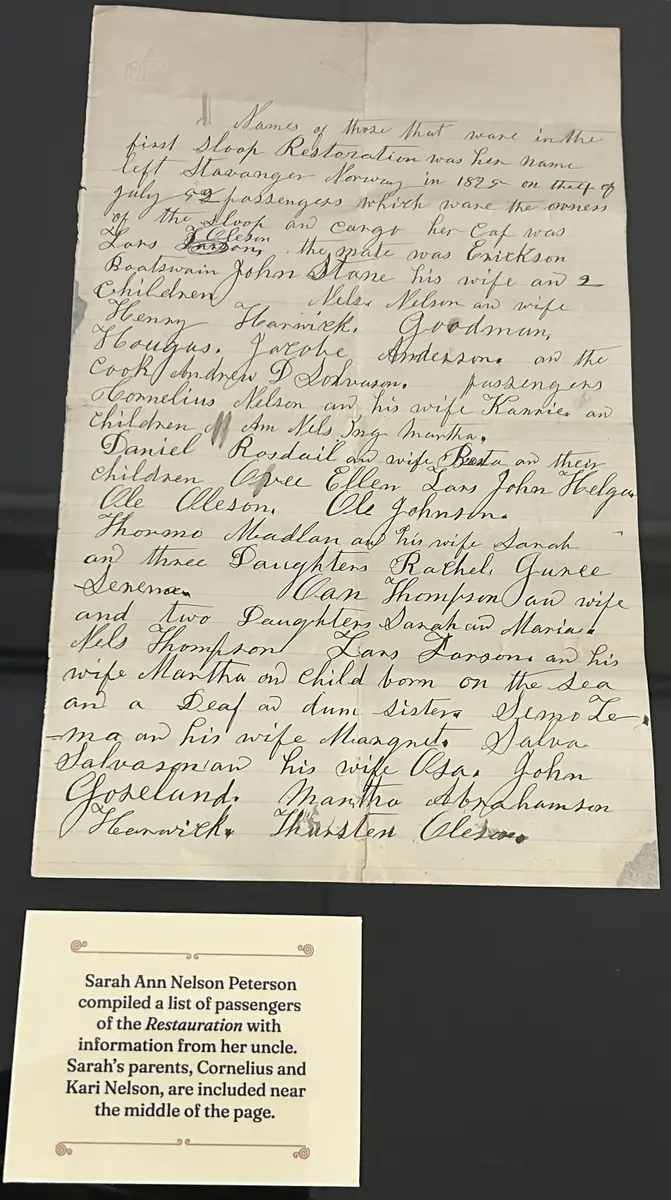 Names of those that ware in the
first Sloop Restoration was her name
left Stavanger Norway in 1825 on the 4 of
July 52 passengers which ware the owness
of the sloop an cargo her Cap was
Lars Oleson the mate was Erickson
Boatswain John Stane his wife an 2
Children Nels Nelson an wife
Henry Harwick. Goodman,
Hougas. Jacobe Anderson. an the
Cook Andrew D Solvason. passengers
Hornelius Nelson an his wife Kannie. an
children Ann Nels Ing Martha.
Daniel Rosdail an wife Berta an their
children Ovee Ellen Lars John Helga
Ole Oleson. Ole Johnson.
Thormo Madlan an his wife Sarah
an three Daughters Rachel. Guree
Serena. Oan Thompson an wife
and two Daughters Sarah an Maria.
Nels Thompson Lars Larson. an his
wife Martha an child born on the sea
an a Deaf an dum sister. Semo Le
-ma an his wife Margret. Salva
Salvason an his wife Osa. John
Goseland. Martha Abrahamson
Harwick. Thursten Oleson.
Sarah Ann Nelson Peterson
compiled a list of passengers
of the Restauration with
information from her uncle.
Sarah's parents, Cornelius and
Kari Nelson, are included near
the middle of the page.